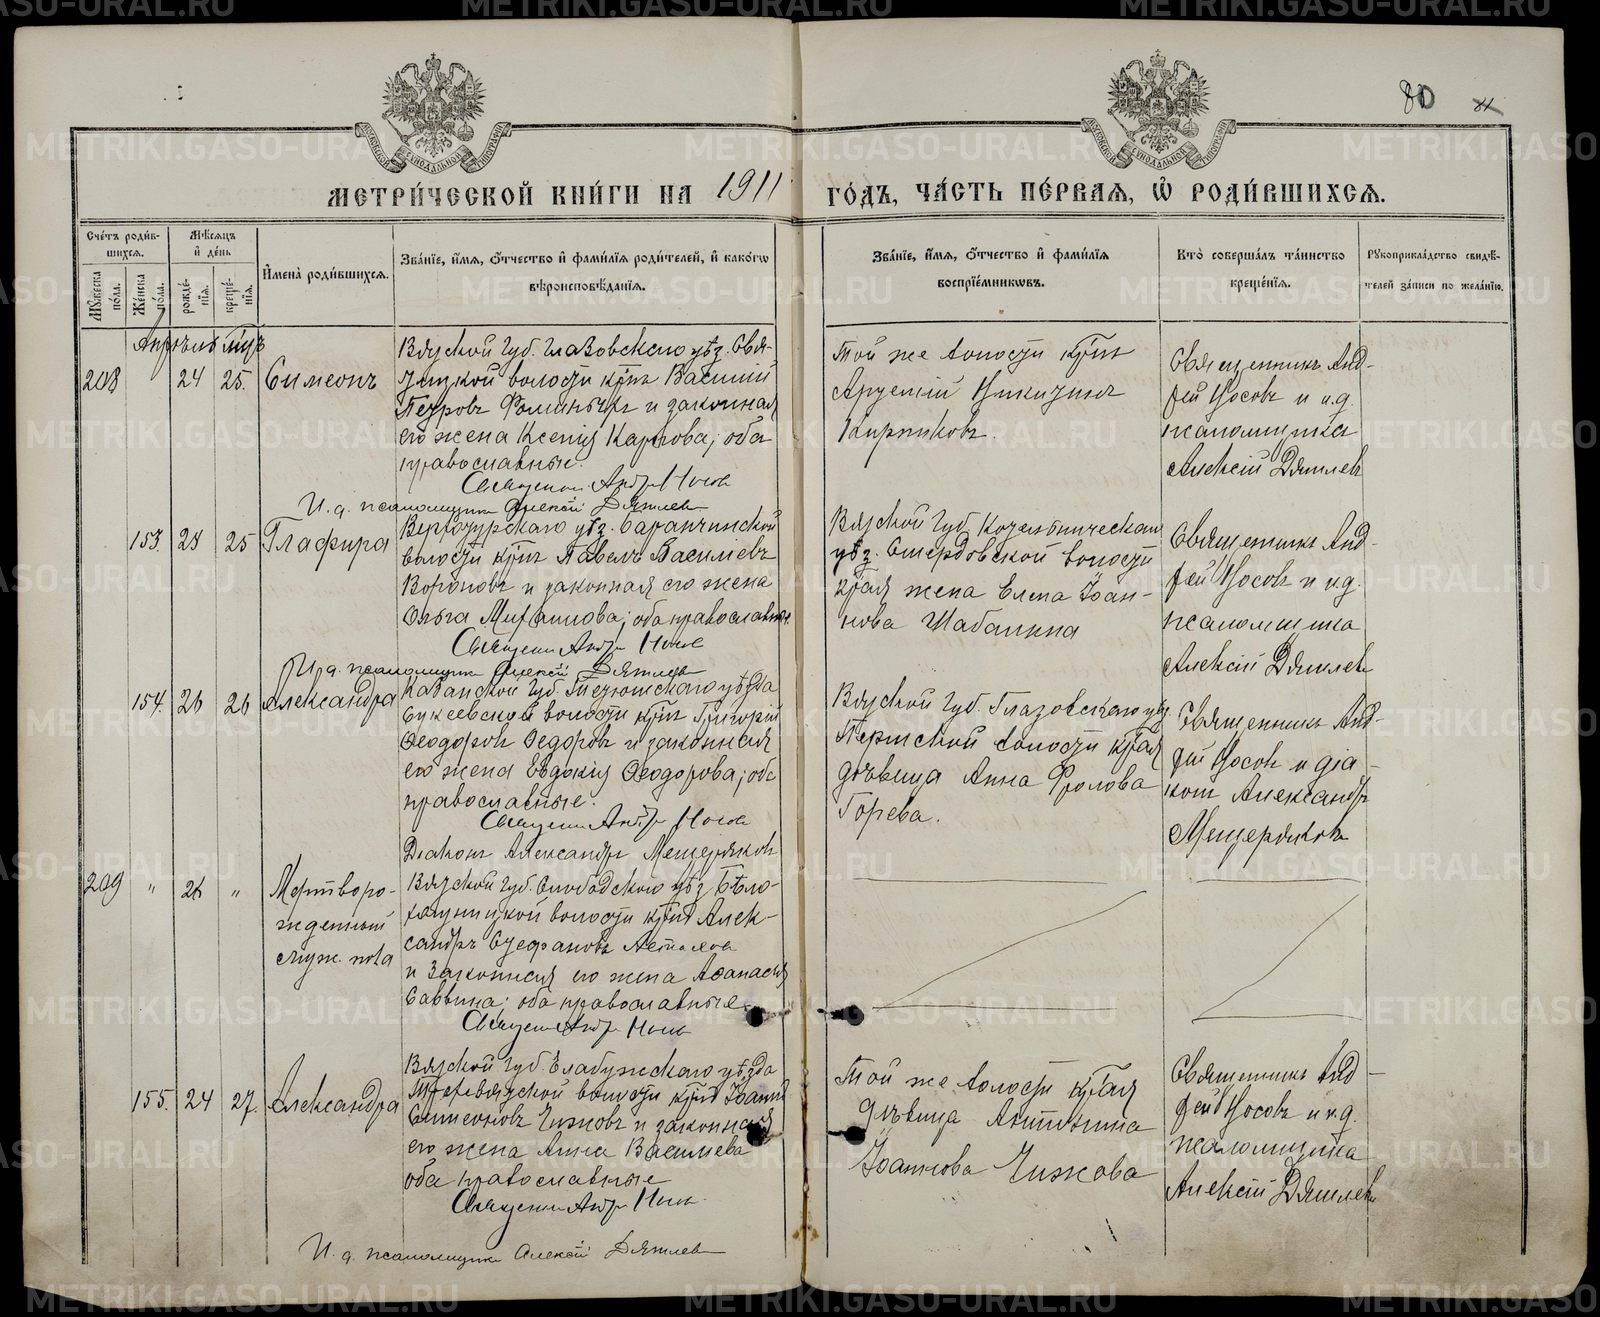 80 81
МОСКОВСКОЙ СѴНОДАЛЬНОЙ ТИПОГРАФІИ
МОСКОВСКОЙ СѴНОДАЛЬНОЙ ТИПОГРАФІИ
МЕТРИ́ЧЕСКОЙ КНИ́ГИ НА 1911 ГО́ДЪ, ЧА́СТЬ ПЕ́РВАѦ, Ѡ РОДИ́ВШИХСѦ.
Сче́тъ роди́в-
шихсѧ.
Мꙋжеска по́ла.
Же́нска по́ла.
Мѣ́сѧцъ
и҆ де́нь
рожде́-
нїѧ.
креще́-
нїѧ.
И҆мена̀ роди́вшихсѧ.
Зва́нїе, и҆́мѧ, ѻ҆́тчество и҆ фами́лїѧ роди́телей, и҆ како́гѡ
вѣроисповѣ́данїѧ.
Зва́нїе, и҆́мѧ, ѻ҆́тчество и҆ фами́лїѧ
воспрїе́мникѡвъ.
Кто̀ соверша́лъ та́инство
креще́нїѧ.
Рꙋкоприкла́дство свидѣ́-
телей за́писи по жела́нїю.
Апрѣль мцъ
208
24
25.
Симеонъ
Вятской губ. Глазовскаго уѣз. Свя-
тицкой волости крнъ Василій
Петровъ Фоминыхъ и законная
его жена Ксенія Карпова; оба
православные.
Священникъ Андр Носовъ
И. д. псаломщика Алексѣй Дятлевъ
Той же волости крнъ
Артемій Никитинъ
Кирпиковъ.
Священникъ Анд-
рей Носовъ и и.д.
псаломщика
Алексій Дятлевъ
153.
23
25
Глафира
Верхотурскаго уѣз. Баранчинской
волости крнъ Павелъ Васильевъ
Вороновъ и законная его жена
Ольга Михаилова; оба православны.
Священник Андр Носов
И. д. псаломщика Алексѣй Дятлевъ
Вятской губ. Котельническаго
уѣз. волости
края жена Елена Іоан-
нова Шабалина
Священникъ Анд-
рей Носовъ и и.д.
псаломщика
Алексій Дятлевъ
154.
26
26
Александра
Казанской губ. Тетюшскаго уѣзда
волости крнъ Григорій
Ѳеодоровъ Ѳедоровъ и законная
его жена Евдокія Ѳеодорова; оба
православные.
Священник Андр Носовъ
Діаконъ Александръ Мещеряковъ
Вятской губ. Глазовскаго уѣз.
волости края
дѣвица Анна Фролова
Горева.
Священникъ Анд-
рей Носовъ и діа-
конъ Александръ
Мещеряковъ
209
"
26
"
Мертворо-
жденный
муж. пола
Вятской губ. Слободскаго уѣз Бѣло-
холуницкой волости крнъ Алек-
сандръ Стефановъ
и законная его жена Аѳанасія
Саввина; оба православные.
Священник Андр Носовъ
155.
24
27.
Александра
Вятской губ. Елабужскаго уѣзда
волости крнъ Іоаннъ
Симеоновъ Чижовъ и законная
его жена Анна Васильева
оба православные
Священник Андр Носов.
И. д. псаломщика Алексѣй Дятлевъ
Той же волости края
дѣвица
Іоаннова Чижова
Священникъ Анд-
рей Носовъ и и.д.
псаломщика
Алексій Дятлевъ
METRIKI.GASO-URAL.RU